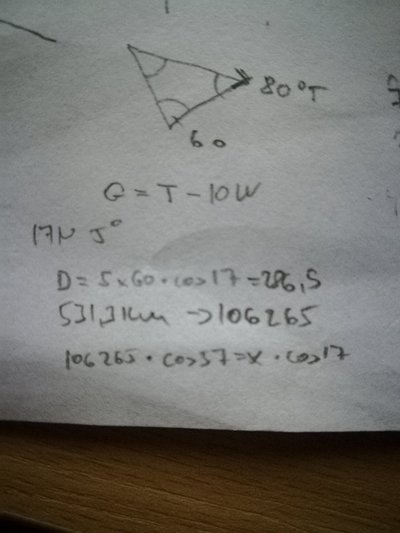 80°T
60
G = T - 10W
17N 5°
D = 5 x 60 · cos 17 = 286,5
531,3 km → 106265
106265 · cos 57 = x · cos 17